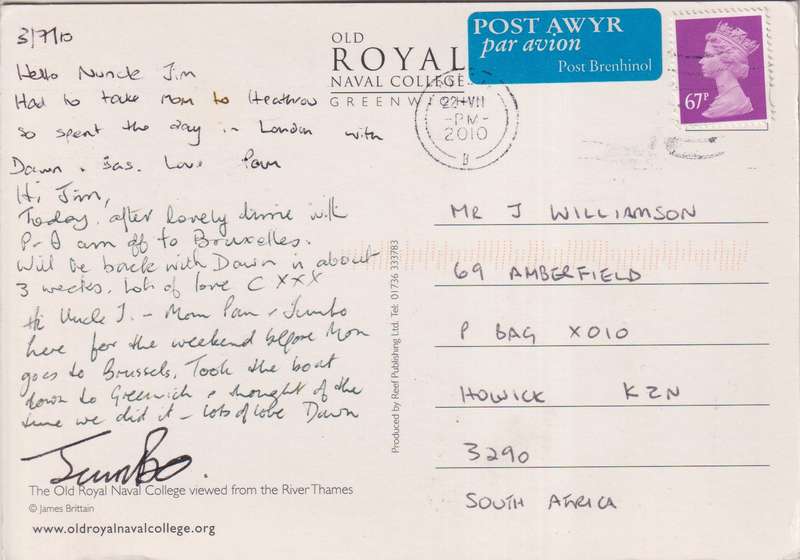 3/7/10
Hello Nuncle Jim
Had to take Mom to Heathrow
so spent the day in London with
Dawn + Jas. Love Pam
Hi Jim,
Today, after lovely time with
P + D am off to Bruxelles.
Will be back with Dawn in about
3 weeks. Lots of love C XXX
Hi Uncle J. - Mom Pam + Jumbo
here for the weekend before Mom
goes to Brussels. Took the boat
down to Greenwich + thought of the
time we did it - lots of love Dawn
Jumbo.
The Old Royal Naval College viewed from the River Thames
© James Brittain
www.oldroyalnavalcollege.org
Produced by Reef Publishing Ltd. Tel: 01736 333783
OLD
ROYAL
NAVAL COLLEGE
GREENWICH
POST AWYR
par avion
Post Brenhinol
67P
22-VII
-PM-
2010
MR J WILLIAMSON
69 AMBERFIELD
P BAG X010
HOWICK KZN
3290
SOUTH AFRICA